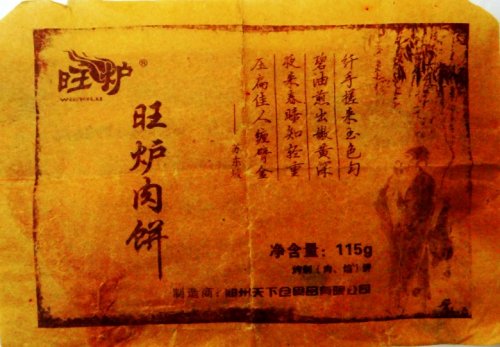 旺炉®
旺炉肉饼
纤手搓来玉色匀
碧油煎出嫩黄深
夜来春睡知轻重
压扁佳人缠臂金
——苏东坡
净含量：115g
制造商：州天下仓食品有限公司